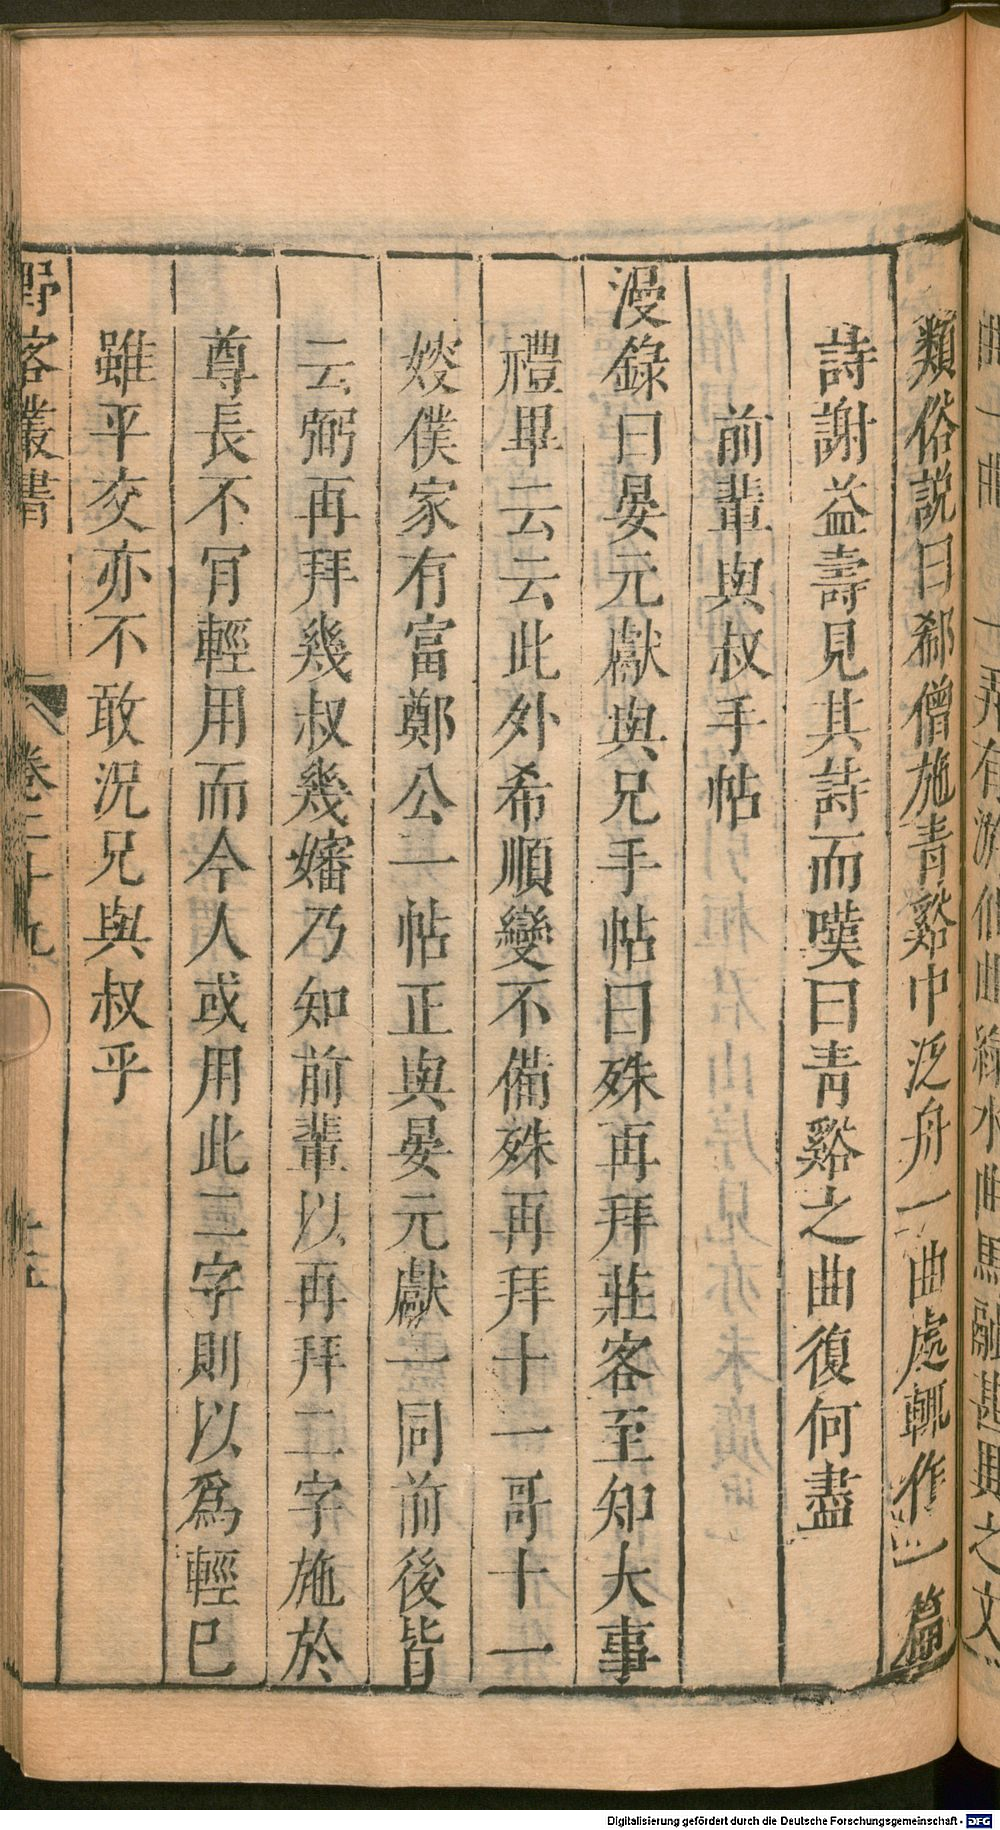 類俗說曰郗僧施青谿中泛舟一曲處輒作一篇
詩謝益壽見其詩而嘆曰青谿之曲復何盡
前輩與叔手帖
漫錄曰晏元獻與兄手帖曰殊再拜莊客至知大事
禮畢云云此外希順變不備殊再拜十一哥十一
嫂僕家有富鄭公一帖正與晏元獻一同前後皆
云弼再拜幾叔幾嬸乃知前輩以再拜二字施於
尊長不肎輕用而今人或用此二字則以爲輕已
雖平交亦不敢況兄與叔乎
野客叢書 卷二十九 十五
Digitalisierung gefördert durch die Deutsche Forschungsgemeinschaft - DFG